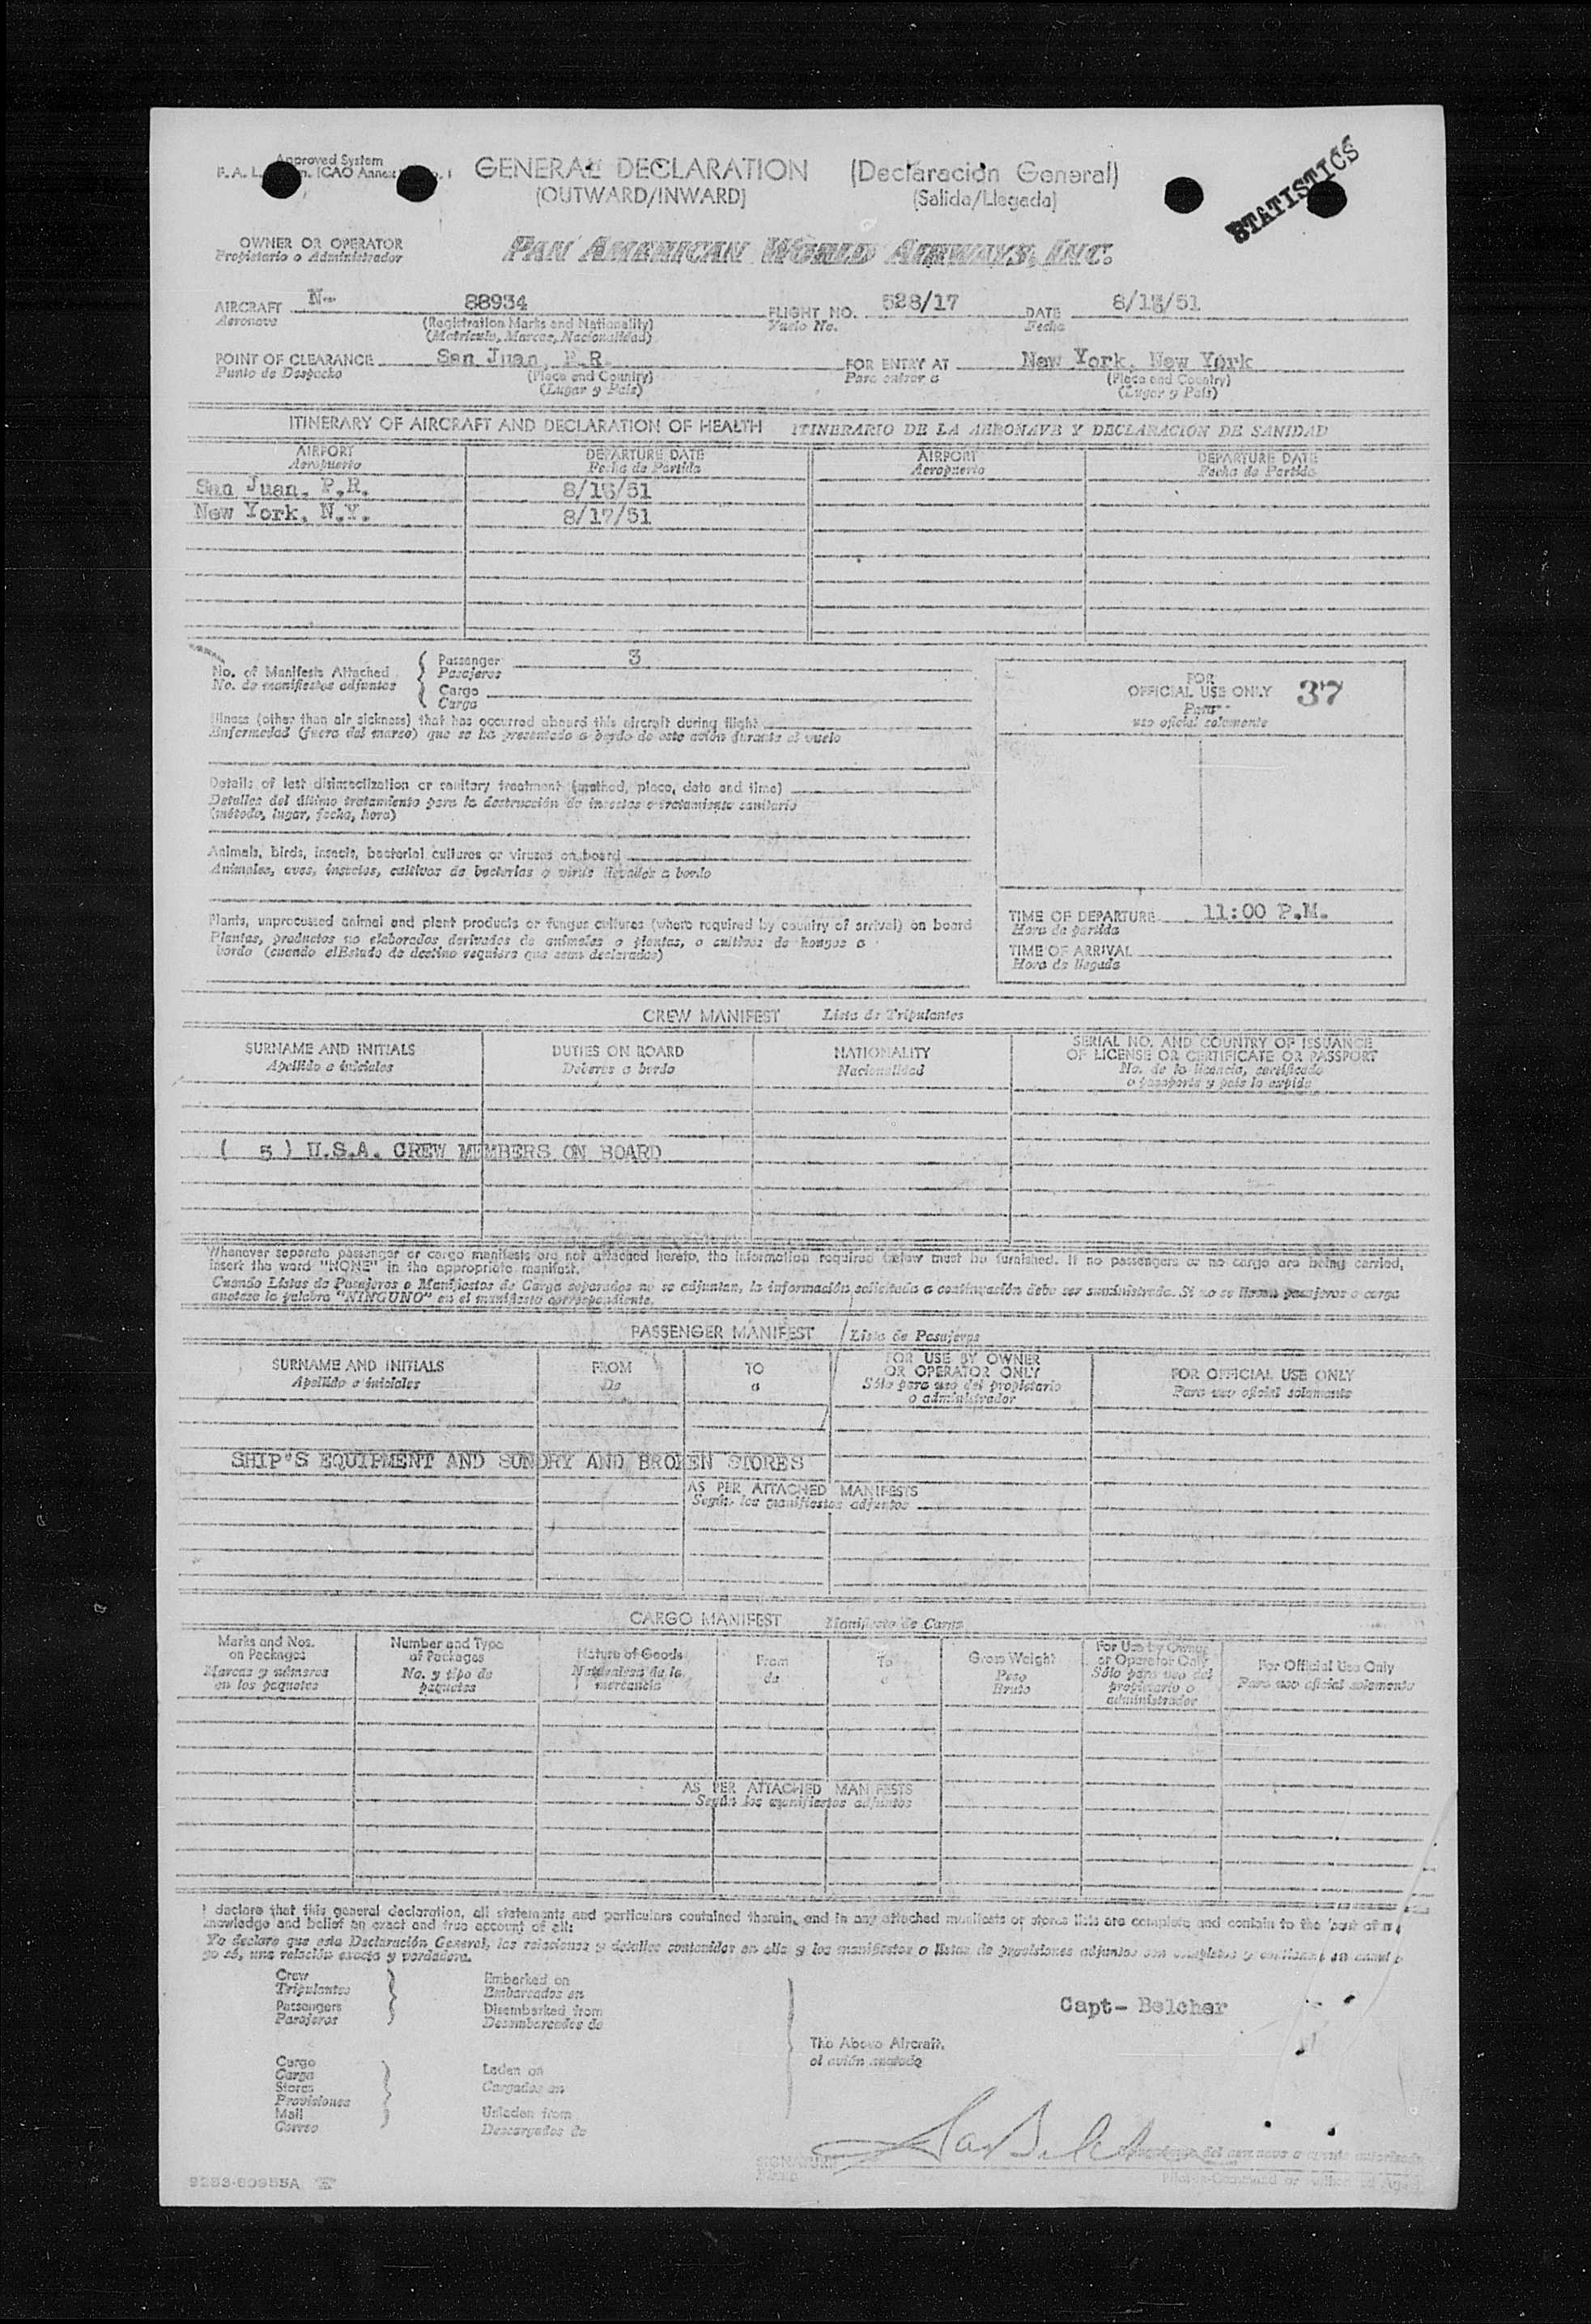 Approved System
GENERAL DECLARATION (Declaración General)
(OUTWARD/INWARD) (Salida/Llegada)
STATISTICS
OWNER OR OPERATOR
Propietario o Administrador
PAN AMERICAN WORLD AIRWAYS, INC.
AIRCRAFT N- 88934 FLIGHT NO. 528/17 DATE
Aeronave (Registration Marks and Nationality) Vuelo No. Fecha
(Matricula, Marcas, Nacionalidad)
POINT OF CLEARANCE San Juan, P.R. FOR ENTRY AT New York, New York
Punto de Despacho (Place and Country) Para entrar a (Place and Country)
(Lugar y País) (Lugar y País)
ITINERARY OF AIRCRAFT AND DECLARATION OF HEALTH ITINERARIO DE LA AERONAVE Y DECLARACION DE SANIDAD
AIRPORT DEPARTURE DATE AIRPORT DEPARTURE DATE
Aeropuerto Fecha de Partida Aeropuerto Fecha de Partida
San Juan, P.R.
New York, N.Y. 8/17/51
No. of Manifests Attached Passenger 3
No. de manifiestos adjuntos Pasajeros
Cargo
Carga
FOR
OFFICIAL USE ONLY 37
Para
uso oficial solamente
Illness (other than air sickness) that has occurred aboard this aircraft during flight
Enfermedad (fuera del mareo) que se ha presentado a bordo de este avión durante el vuelo
Details of last disinsectization or sanitary treatment (method, place, date and time)
Detalles del último tratamiento para la destrucción de insectos o tratamiento sanitario
(método, lugar, fecha, hora)
Animals, birds, insects, bacterial cultures or viruses on board
Animales, aves, insectos, cultivos de bacterias o virus llevados a bordo
Plants, unprocessed animal and plant products or fungus cultures (where required by country of arrival) on board
Plantas, productos no elaborados derivados de animales o plantas, o cultivos de hongos a
bordo (cuando el Estado de destino requiera que sean declarados)
TIME OF DEPARTURE 11:00 P.M.
Hora de partida
TIME OF ARRIVAL
Hora de llegada
CREW MANIFEST Lista de Tripulantes
SURNAME AND INITIALS DUTIES ON BOARD NATIONALITY SERIAL NO. AND COUNTRY OF ISSUANCE
OF LICENSE OR CERTIFICATE OR PASSPORT
Apellido e iniciales Deberes a bordo Nacionalidad No. de la licencia, certificado
o pasaporte y país lo expide
( 5 ) U.S.A. CREW MEMBERS ON BOARD
Whenever separate passenger or cargo manifests are not attached hereto, the information required below must be furnished. If no passengers or no cargo are being carried,
insert the word "NONE" in the appropriate manifest.
Cuando Listas de Pasajeros o Manifiestos de Carga separados no se adjuntan, la información solicitada a continuación debe ser suministrada. Si no se llevan pasajeros o carga
anotese la palabra "NINGUNO" en el manifiesto correspondiente.
PASSENGER MANIFEST Lista de Pasajeros
SURNAME AND INITIALS FROM TO FOR USE BY OWNER
OR OPERATOR ONLY FOR OFFICIAL USE ONLY
Apellido e iniciales De a Sólo para uso del propietario
o administrador Para uso oficial solamente
SHIP'S EQUIPMENT AND SUNDRY AND BROKEN STORES
AS PER ATTACHED MANIFESTS
Según los manifiestos adjuntos
CARGO MANIFEST Manifiesto de Carga
Marks and Nos.
on Packages
Marcas y números
en los paquetes
Number and Type
of Packages
No. y tipo de
paquetes
Nature of Goods
Naturaleza de la
mercancía
From
de
To
a
Gross Weight
Peso
Bruto
For Use by Owner
or Operator Only
Sólo para uso del
propietario o
administrador
For Official Use Only
Para uso oficial solamente
AS PER ATTACHED MANIFESTS
Según los manifiestos adjuntos
I declare that this general declaration, all statements and particulars contained therein, and in any attached manifests or stores lists are complete and contain to the best of m
knowledge and belief an exact and true account of all:
Yo declaro que esta Declaración General, las relaciones y detalles contenidos en ella y los manifiestos o listas de provisiones adjuntos son completos y
yo sé, una relación exacta y verdadera.
Crew
Tripulantes
Passengers
Pasajeros
Embarked on
Embarcados en
Disembarked from
Desembarcados de
Capt- Belcher
The Above Aircraft.
el avión anotado
Cargo
Carga
Stores
Provisiones
Mail
Correo
Laden on
Cargados en
Unladen from
Descargados de
SIGNATURE
Firma